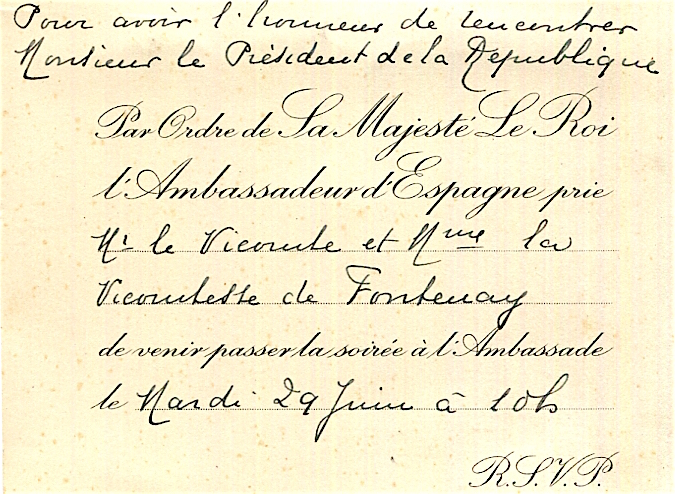 Pour avoir l'honneur de rencontrer
Monsieur le Président de la République
Par Ordre de Sa Majesté Le Roi
l'Ambassadeur d'Espagne prie
Mr le Vicomte et Mme la
Vicomtesse de Fontenay
de venir passer la soirée à l'Ambassade
le Mardi 29 Juin à 10h
R.S.V.P.